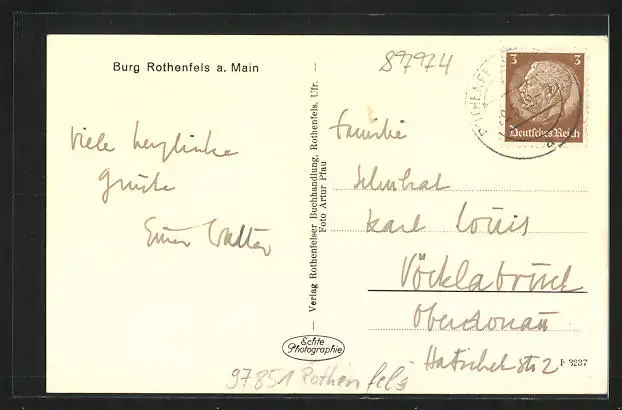 Burg Rothenfels a. Main
89974
3 3
Deutsches Reich
ROTHENFELS
Viele herzliche
Grüße
Euer Walter
Verlag Rothenfelser Buchhandlung, Rothenfels, Ufr.
Foto Artur Pfau
Familie
Schulrat
Karl Louis
Vöcklabruck
Oberdonau
Hatschekstr 2
Echte
Photographie
F 3237
97851 Rothenfels